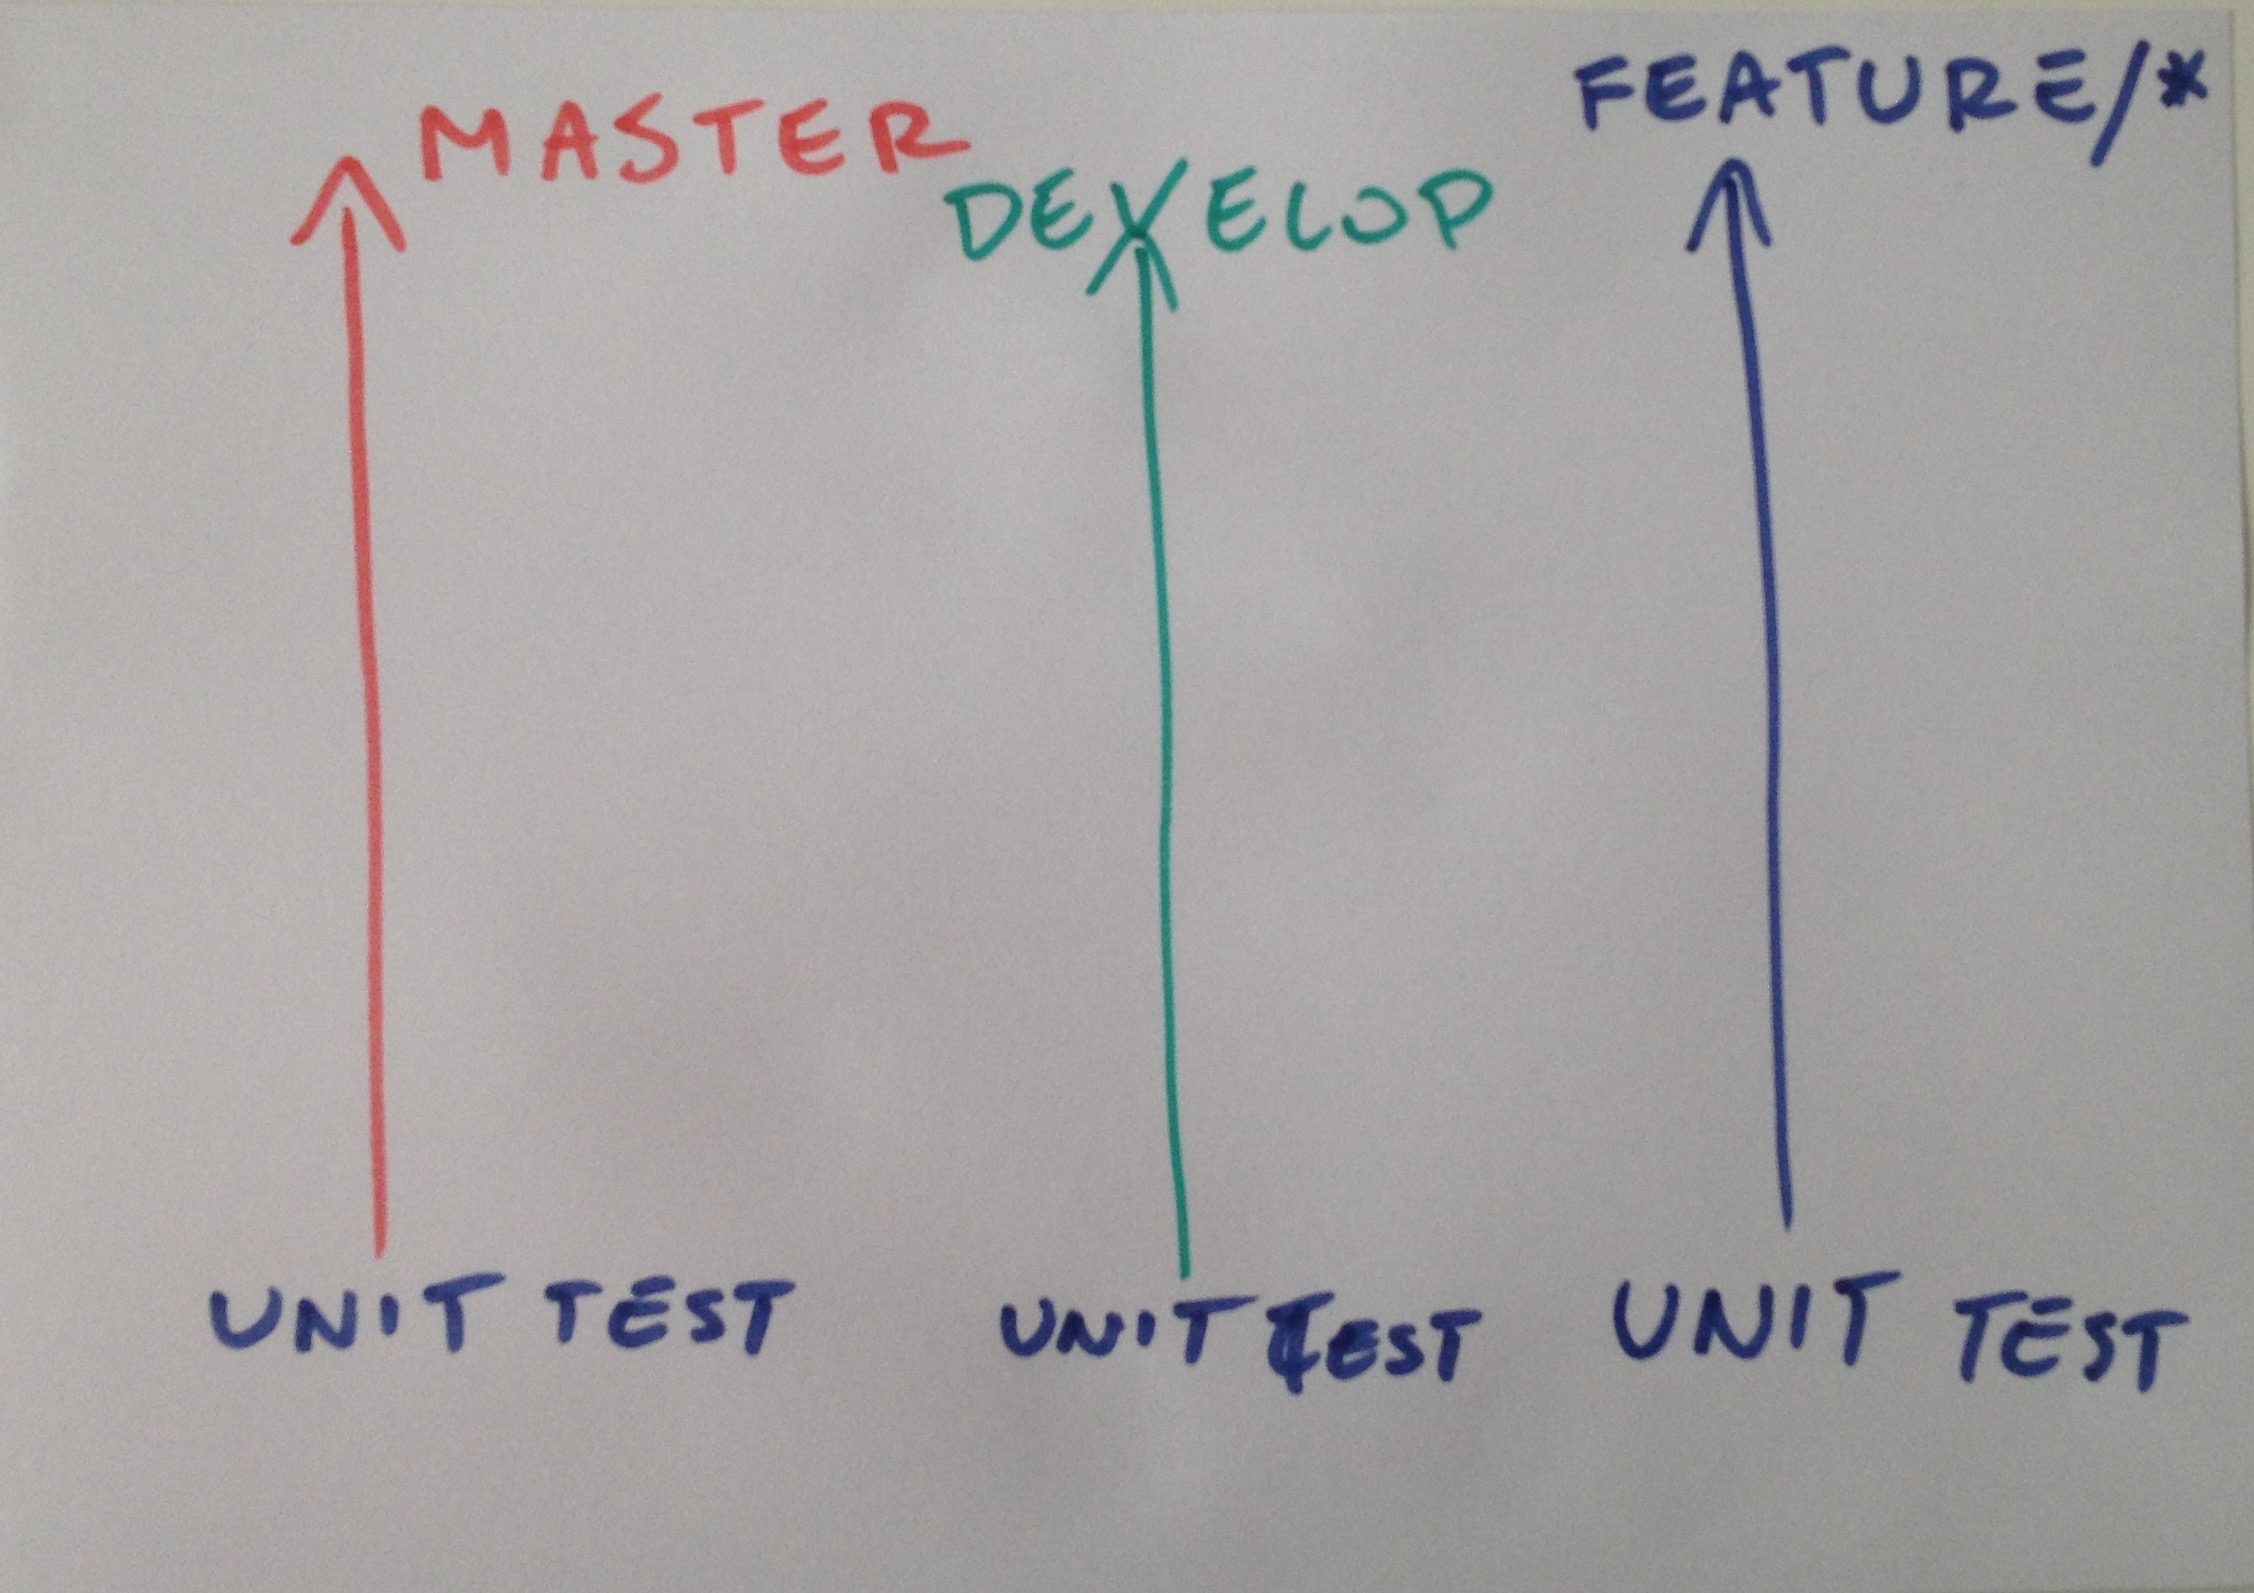 MASTER
DEVELOP
FEATURE/*
UNIT TEST
UNIT TEST
UNIT TEST